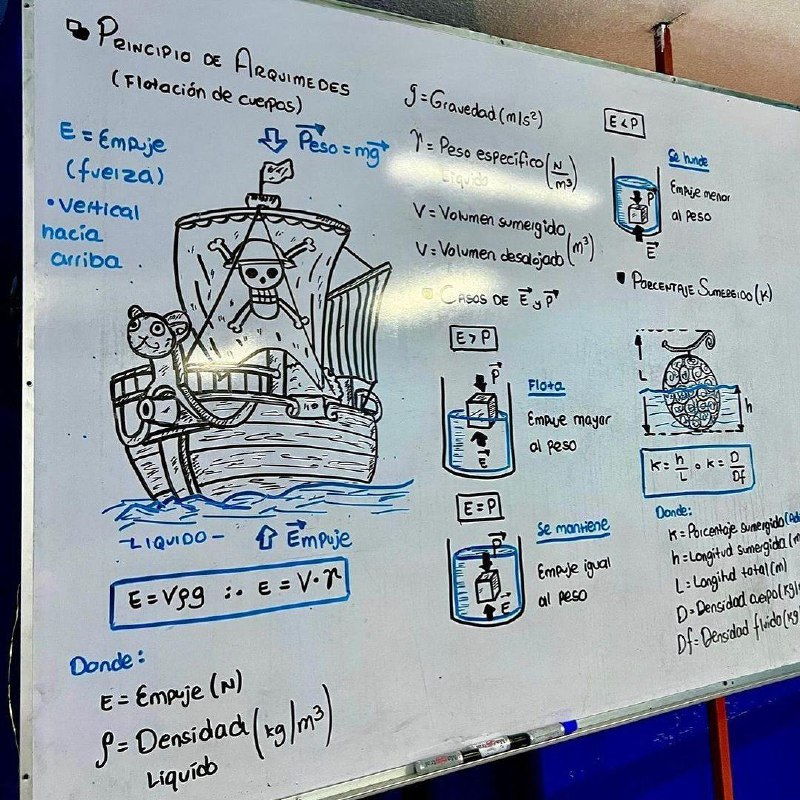 Principio de Arquimedes
(Flotación de cuerpos)
E = Empuje
(fuerza)
• Vertical
hacia
arriba
Peso = mg
-LIQUIDO-
Empuje
E = Vρg ∴ E = V·γ
Donde:
E = Empuje (N)
ρ = Densidad (kg/m³)
Liquido
g = Gravedad (m/s²)
γ = Peso especifico (N/m³)
Liquido
V = Volumen sumergido
V = Volumen desalojado (m³)
Casos de E y P
E > P
P
E
Flota
Empuje mayor
al peso
E = P
P
E
Se mantiene
Empuje igual
al peso
E < P
P
E
Se hunde
Empuje menor
al peso
Porcentaje Sumergido (K)
L
h
K = h/L o K = D/Df
Donde:
K = Porcentaje sumergido
h = Longitud sumergida (m
L = Longitud total (m)
D = Densidad cuerpo (kg/
Df = Densidad fluido (kg